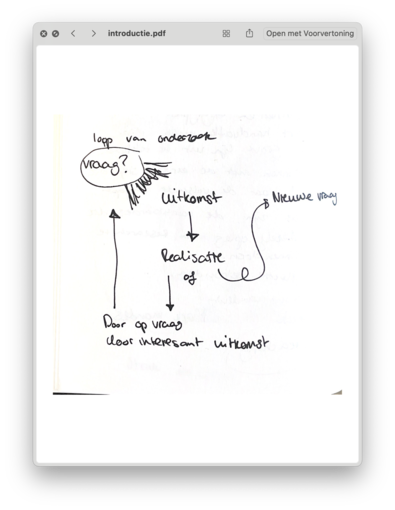 introductie.pdf
Open met Voorvertoning
loop van onderzoek
vraag?
uitkomst
Nieuwe vraag
Realisatie
of
Door op vraag
door interesant uitkomst